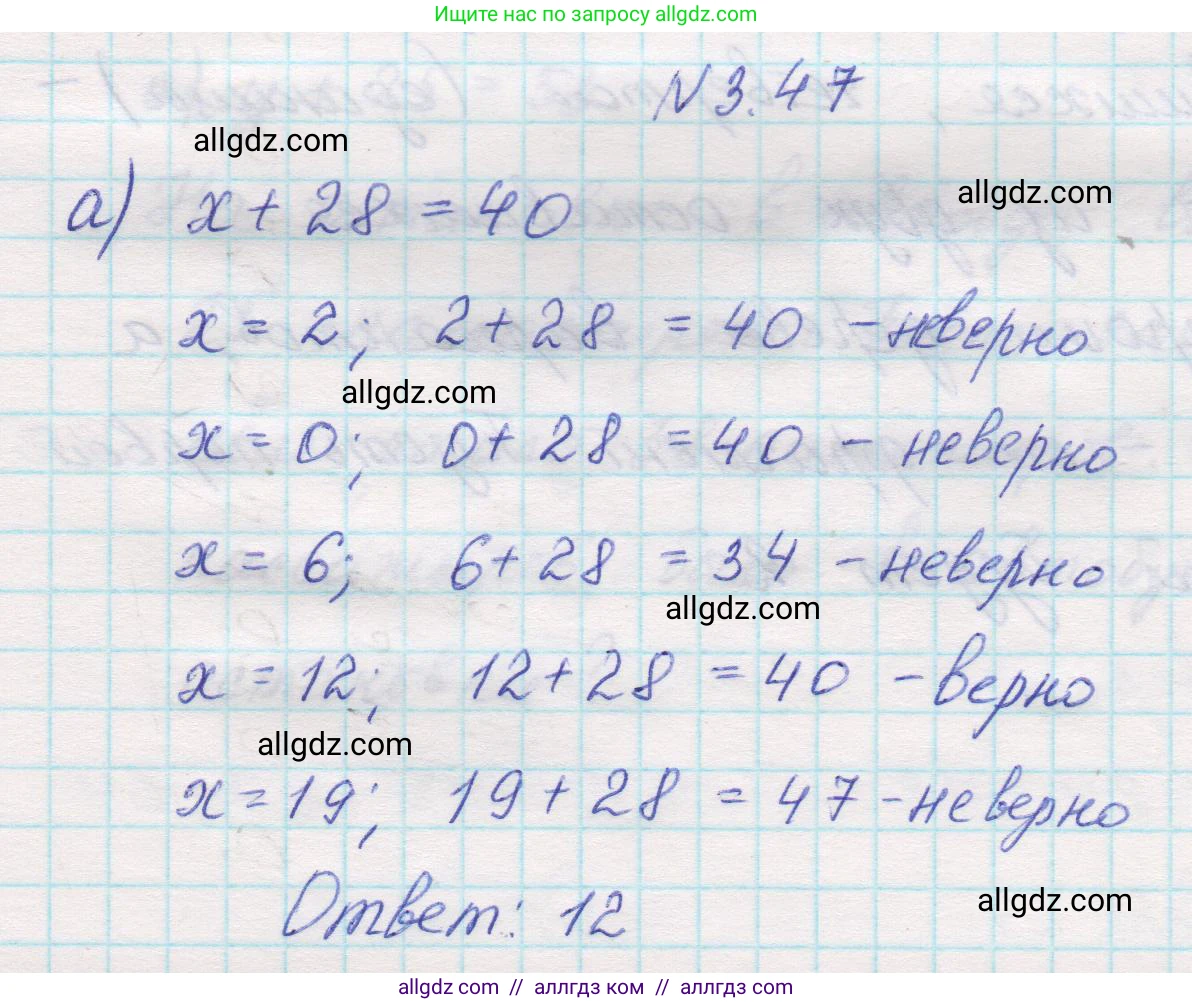 Ищите нас по запросу allgdz.com
N 3.47
allgdz.com
а) x + 28 = 40
allgdz.com
x = 2; 2 + 28 = 40 - неверно
allgdz.com
x = 0; 0 + 28 = 40 - неверно
x = 6; 6 + 28 = 34 - неверно
allgdz.com
x = 12; 12 + 28 = 40 - верно
allgdz.com
x = 19; 19 + 28 = 47 - неверно
Ответ: 12
allgdz.com
allgdz.com // аллгдз ком // аллгдз.com